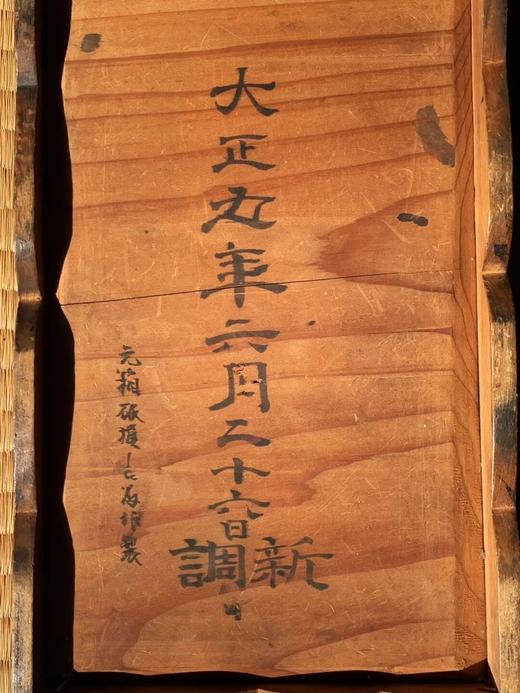 大正九年六月二十六日
新調
元箱破損為作製